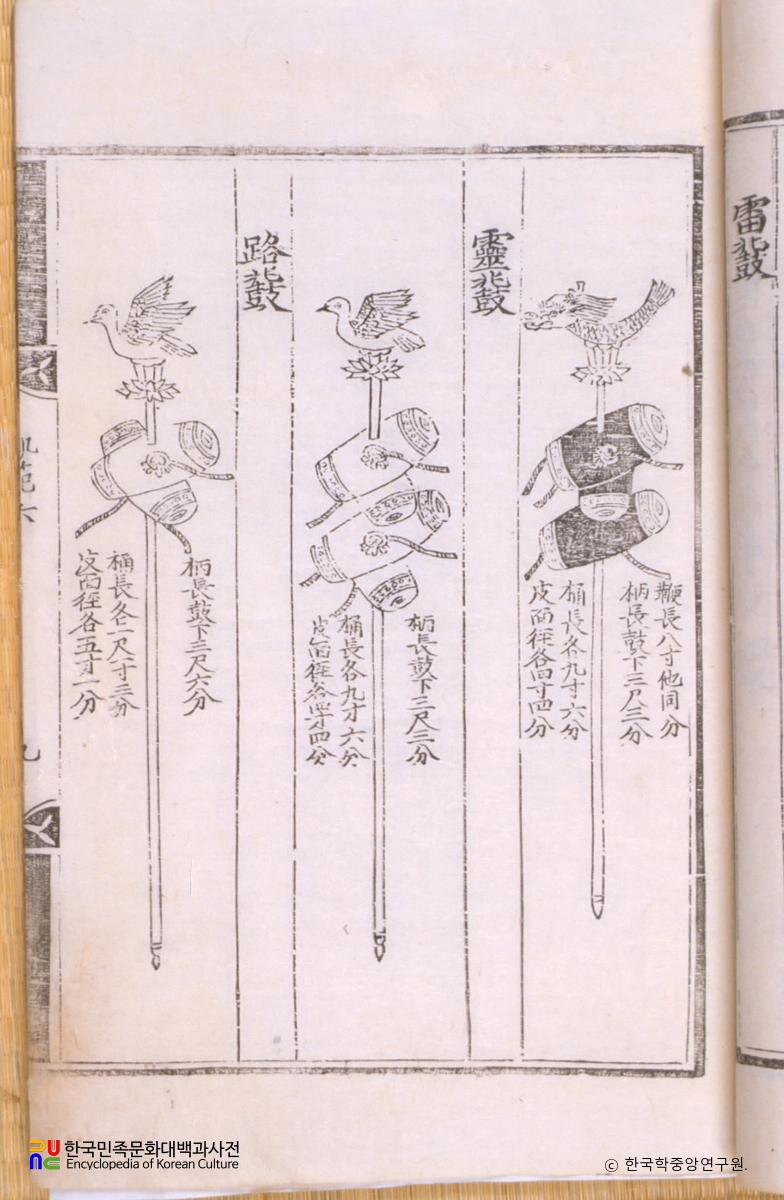 雷鼗
鞭長八寸他同分
柄長鼓下三尺三分
桶長各九寸六分
皮面徑各四寸四分
靈鼗
柄長鼓下三尺三分
桶長各九寸六分
皮面徑各四寸四分
路鼗
柄長鼓下三尺六分
桶長各一尺寸三分
皮面徑各五寸一分
한국민족문화대백과사전
Encyclopedia of Korean Culture
© 한국학중앙연구원.